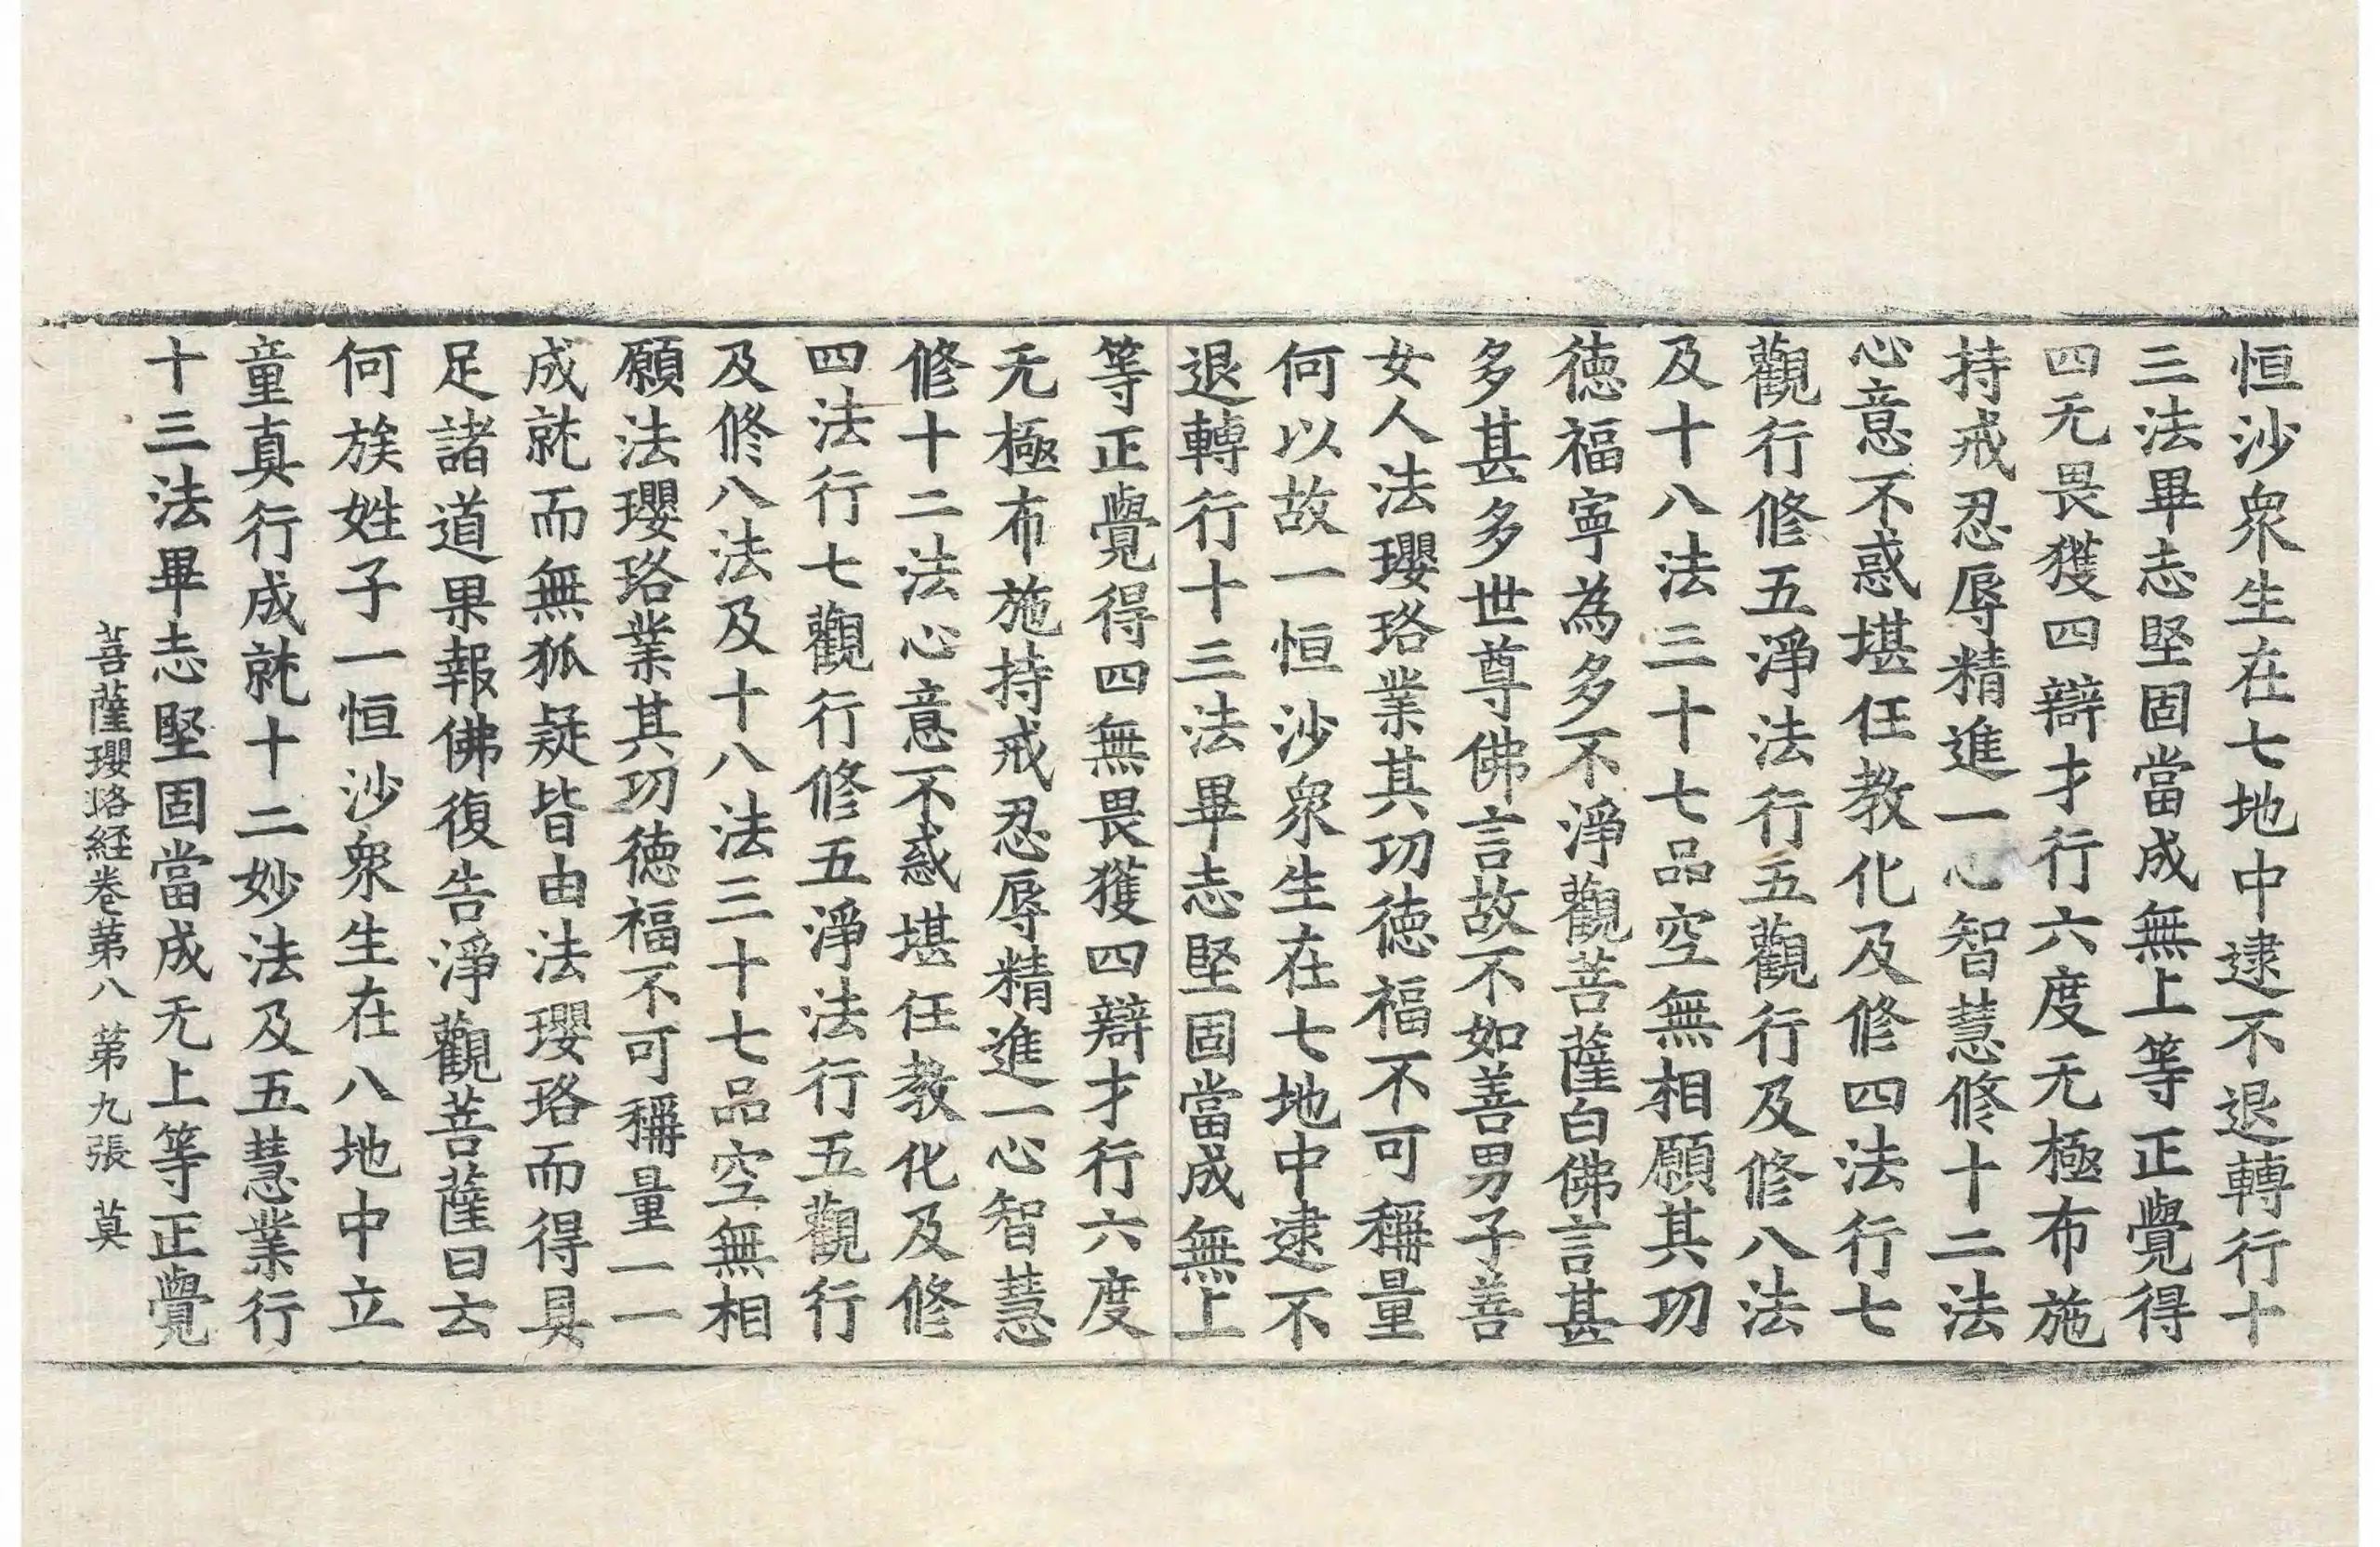 恒沙衆生在七地中逮不退轉行十
三法畢志堅固當成無上等正覺得
四无畏獲四辯才行六度无極布施
持戒忍辱精進一心智慧修十二法
心意不惑堪任教化及修四法行七
觀行修五淨法行五觀行及修八法
及十八法三十七品空無相願其功
德福寧為多不淨觀菩薩白佛言甚
多甚多世尊佛言故不如善男子善
女人法瓔珞業其功德福不可稱量
何以故一恒沙衆生在七地中逮不
退轉行十三法畢志堅固當成無上
等正覺得四無畏獲四辯才行六度
无極布施持戒忍辱精進一心智慧
修十二法心意不惑堪任教化及修
四法行七觀行修五淨法行五觀行
及修八法及十八法三十七品空無相
願法瓔珞業其功德福不可稱量一一
成就而無狐疑皆由法瓔珞而得具
足諸道果報佛復告淨觀菩薩曰云
何族姓子一恒沙衆生在八地中立
童真行成就十二妙法及五慧業行
十三法畢志堅固當成无上等正覺
菩薩瓔珞経卷第八 第九張 莫